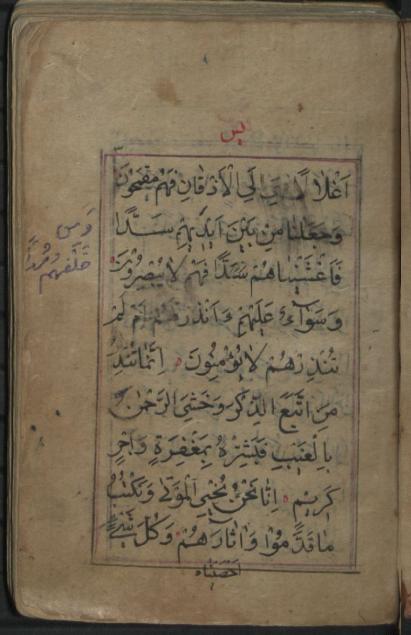 يس
اَغْلَالًا فَهِيَ اِلَى الْاَذْقَانِ فَهُمْ مُقْمَحُونَ
وَجَعَلْنَا مِنْ بَيْنِ اَيْدِيهِمْ سَدًّا
وَمِنْ
خَلْفِهِمْ
فَاَغْشَيْنَاهُمْ سَدًّا فَهُمْ لَا يُبْصِرُونَ
وَسَوَاءٌ عَلَيْهِمْ ءَاَنْذَرْتَهُمْ اَمْ لَمْ
تُنْذِرْهُمْ لَا يُؤْمِنُونَ اِنَّمَا تُنْذِرُ
مَنِ اتَّبَعَ الذِّكْرَ وَخَشِيَ الرَّحْمٰنَ
بِالْغَيْبِ فَبَشِّرْهُ بِمَغْفِرَةٍ وَاَجْرٍ
كَرِيمٍ اِنَّا نَحْنُ نُحْيِي الْمَوْتٰى وَنَكْتُبُ
مَا قَدَّمُوا وَاٰثَارَهُمْ وَكُلَّ شَيْءٍ
احصيناه